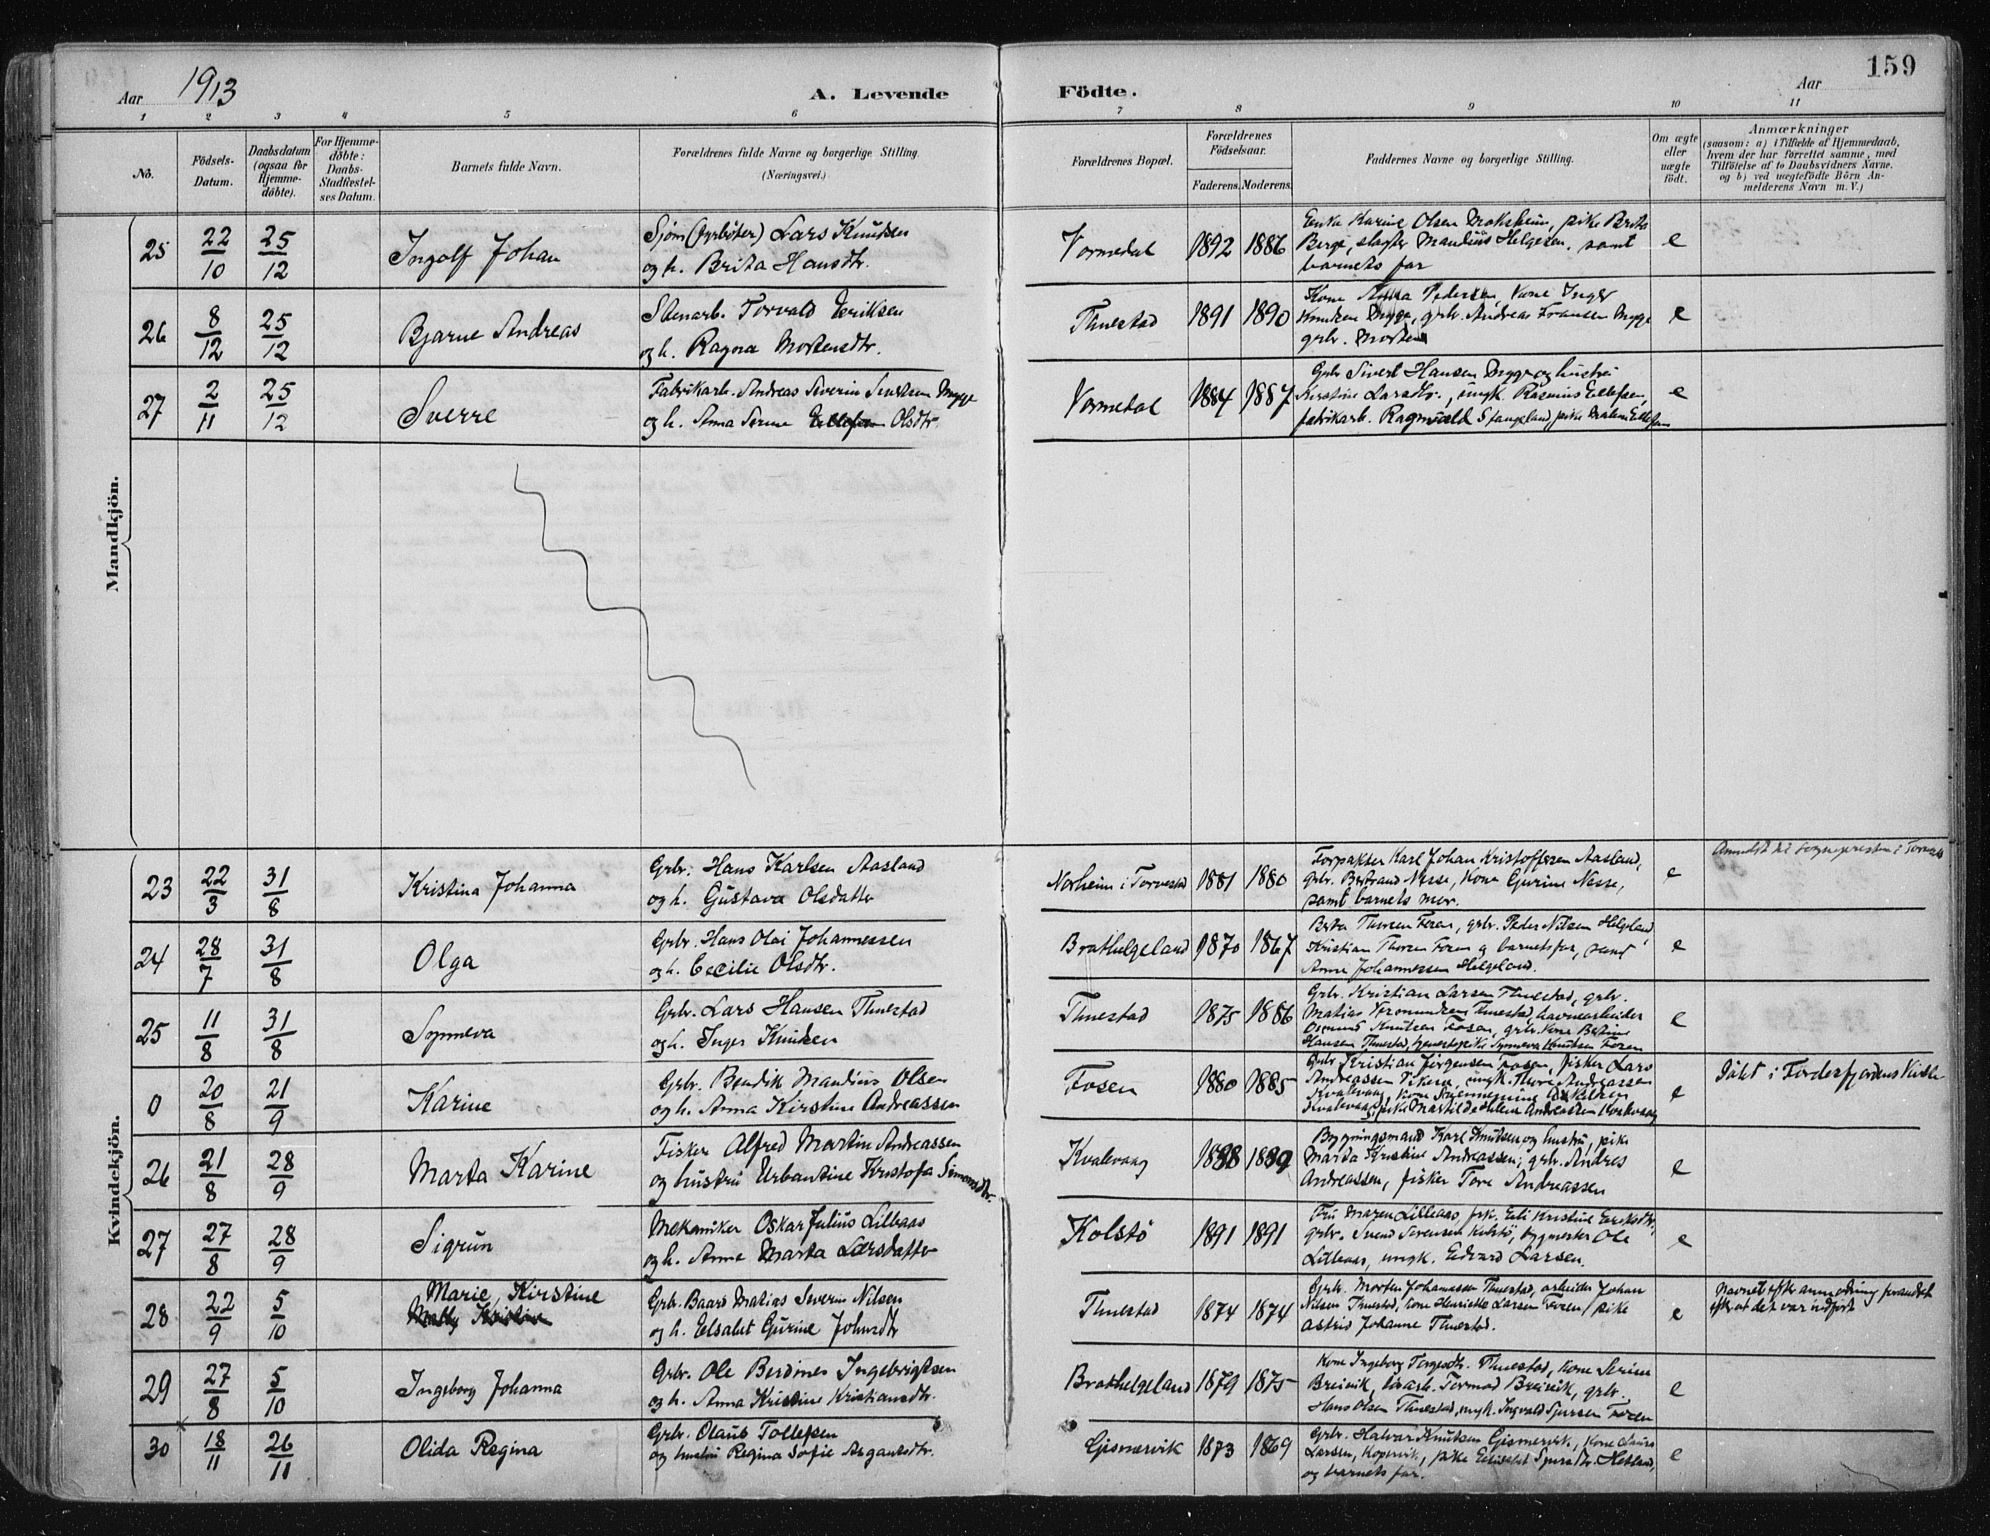 159
Aar 1913
A. Levende Födte.
Aar
1 2 3 4 5 6 7 8 9 10 11
No.
Födsels-Datum.
Daabsdatum (ogsaa for Hjemme-döbte).
For Hjemme-döbte: Daabs-Stadfæstel-ses Datum.
Barnets fulde Navn.
Forældrenes fulde Navne og borgerlige Stilling.
(Næringsvei.)
Forældrenes Bopæl.
Forældrenes Födselsaar.
Faderens. Moderens.
Faddernes Navne og borgerlige Stilling.
Om ægte eller uægte födt.
Anmærkninger
(saasom: a) i Tilfælde af Hjemmedaab,
hvem der har forrettet samme, med
Tilföielse af to Daabsvidners Navne,
og b) ved uægtefödte Börn An-
melderens Navn m. V.)
Mandkjön.
25 22/10 25/12 Ingolf Johan
Sjöm (fyrböter) Lars Knudsen
og h. Brita Hansdtr.
Vormedal 1892 1886
Enke Karine Olsen Moksheim, pike Berta
Berge, slagter Mandius Helgesen, samt
barnets far
e
26 8/12 25/12 Bjarne Andreas
Stenarb. Torvald Eriksen
og h. Ragna Mortensdtr.
Tuestad 1891 1890
Kone Anna Pedersen, Kone Inger
Knudsen Mygge, grbr. Andreas Fransen Mygge
grbr. Morten
e
27 2/11 25/12 Sverre
Fabrikarb. Andreas Severin Sivertsen Mygge
og h. Anna Serine Ellefsen Olsdtr.
Vormedal 1884 1887
Grbr Sivert Hansen Mygge og hustru
Kirstine Larsdtr., ungk. Rasmus Ellefsen,
fabrikarb. Ragnvald Stangeland, pike Malene Ellefsen
e
Kvindekjön.
23 22/3 31/8 Kristina Johanna
Grbr. Hans Karlsen Aasland
og h. Gustava Olsdatter
Norheim i Torvestad 1881 1880
Forpakter Karl Johan Kristoffersen Aasland,
grbr. Bertrand Nesse, Kone Gurine Nesse,
samt barnets mor.
e
Anmeldt til sognepresten i Torvestad
24 28/7 31/8 Olga
Grbr. Hans Olai Johannessen
og h. Cecilie Olsdtr.
Brathelgeland 1870 1867
Berta Thorsen Fosen, grbr. Peder Nilsen Helgeland,
Kristian Thorsen Fosen og barnets far, samt
Anna Johannessen Helgeland.
e
25 11/8 31/8 Synneva
Grbr. Lars Hansen Tuestad
og h. Inger Knudsen
Tuestad 1875 1886
Grbr. Kristian Larsen Tuestad, grbr.
Matias Tuestad, havnearbeider
Osmund Knutsen Fosen, grbr. Kone Bertine
Hansen Tuestad, tjenestepike Synneva Knudsen Fosen
e
0 20/8 21/9 Karine
Grbr. Bendik Mandius Olsen
og h. Anna Kirstine Andreassen
Fosen 1880 1885
Grbr. Kristian Jörgensen Fosen, fisker Lars
Andreassen Vikera, ungk. Thore Andreassen
Kvalevaag, kone
Kvalevaag, pike Matilde Helene Andreassen Kvalevaag
e
Döbt i Fördesfjordens Kirke
26 21/8 28/9 Marta Karine
Fisker Alfred Martin Andreassen
og hustru Urbantine Kristofa Simonsdtr.
Kvalevaag 1888 1889
Bygningsmand Karl Knutsen og hustru, pike
Marta Kristine Andreassen; grbr. Andres
Andreassen, fisker Tore Andreassen
e
27 27/8 28/9 Sigrun
Mekaniker Oskar Julius Lillaas
og h. Anna Marta Larsdatter
Kolstö 1891 1891
Fru Maren Lilleaas, frk. Eli Kristine Eriksdtr,
grbr. Svend Sörensen Kolstö, bygmester Ole
Lilleaas, ungk. Edvard Larsen.
e
28 22/9 5/10 Marie, Kirstine
Grbr. Baard Matias Severin Nilsen
og h. Elsabet Gurine Johnsdtr
Tuestad 1874 1874
Grbr. Morten Johannessen Tuestad, arbeider Johan
Nilsen Tuestad, kone Henriette Larsen Fosen, pike
Astrid Johanne Tuestad.
e
Navnet efter anmodning forandret
efterat det var indfört
29 27/8 5/10 Ingeborg Johanna
Grbr. Ole Berdines Ingebrigtsen
og h. Anna Kristine Kristiansdtr.
Brathelgeland 1879 1875
Kone Ingeborg Torgesdtr. Tuestad, kone Serine
Breivik, Tormod Breivik, grbr.
Hans Olsen Tuestad, ungk. Ingvald Sjursen Fosen
e
30 18/11 26/11 Olida Regina
Grbr. Olaus Tollefsen
og hustru Regina Sofie Asgautsdtr.
Gismervik 1873 1869
Grbr. Halvar Knutsen Gismervik, Kone Laura
Larsen, Kopervik, pike Elisabet Sjursdtr. Hetland,
og barnets far.
e